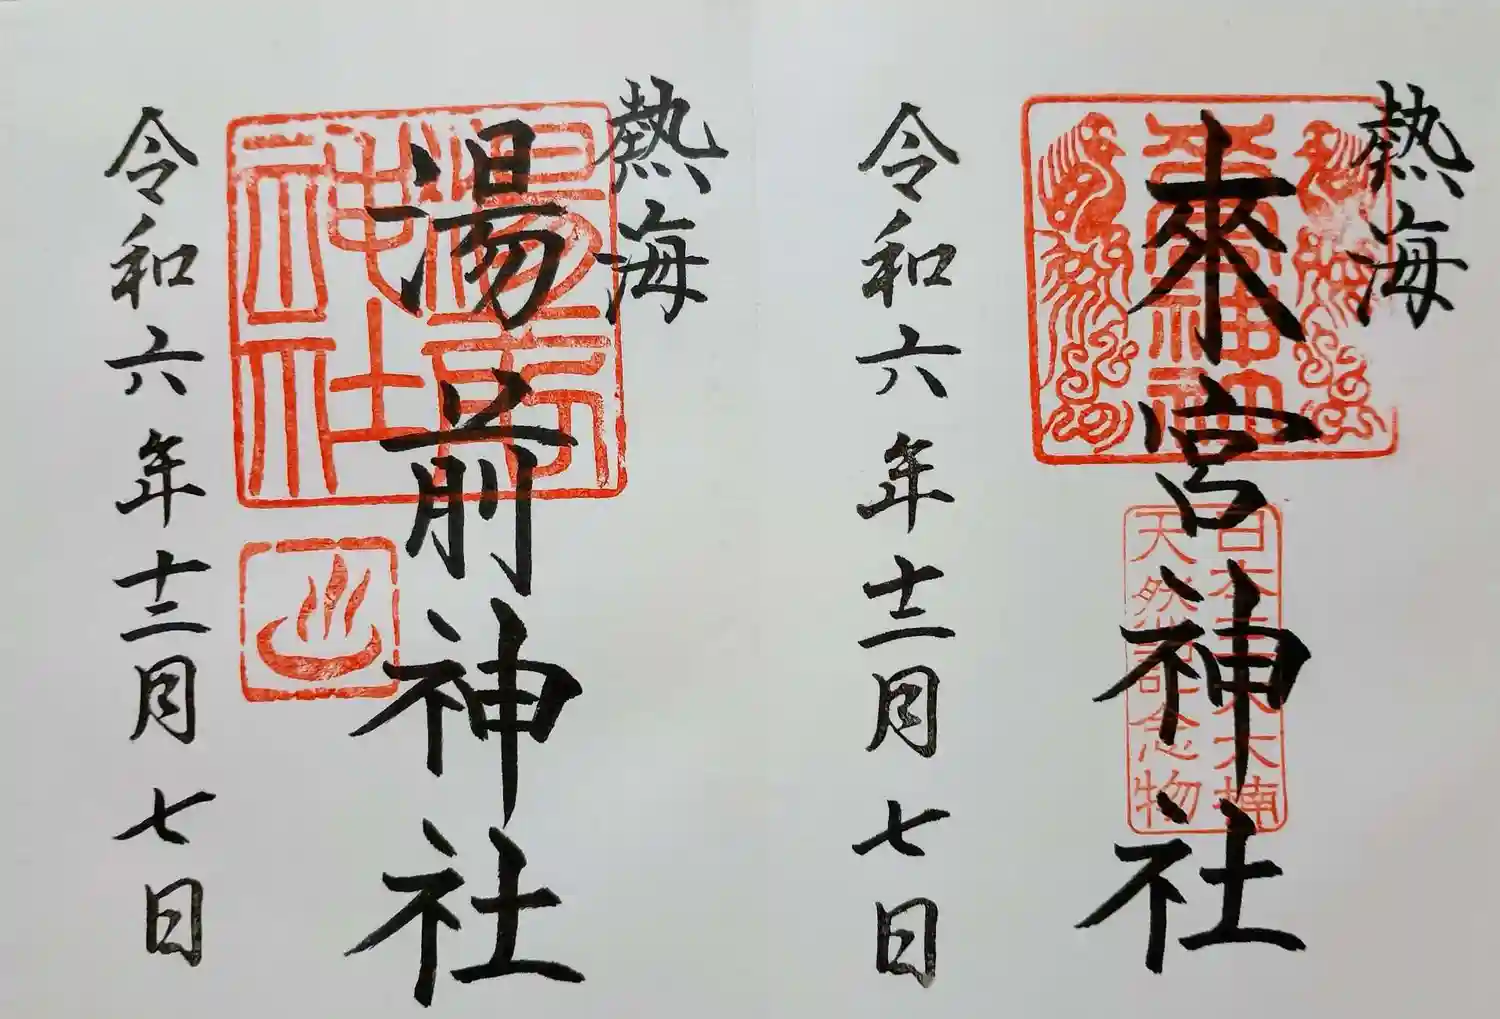 熱海
來宮神社
日本三大大楠
天然記念物
令和六年十二月七日
熱海
湯前神社
湯前
神社
令和六年十二月七日